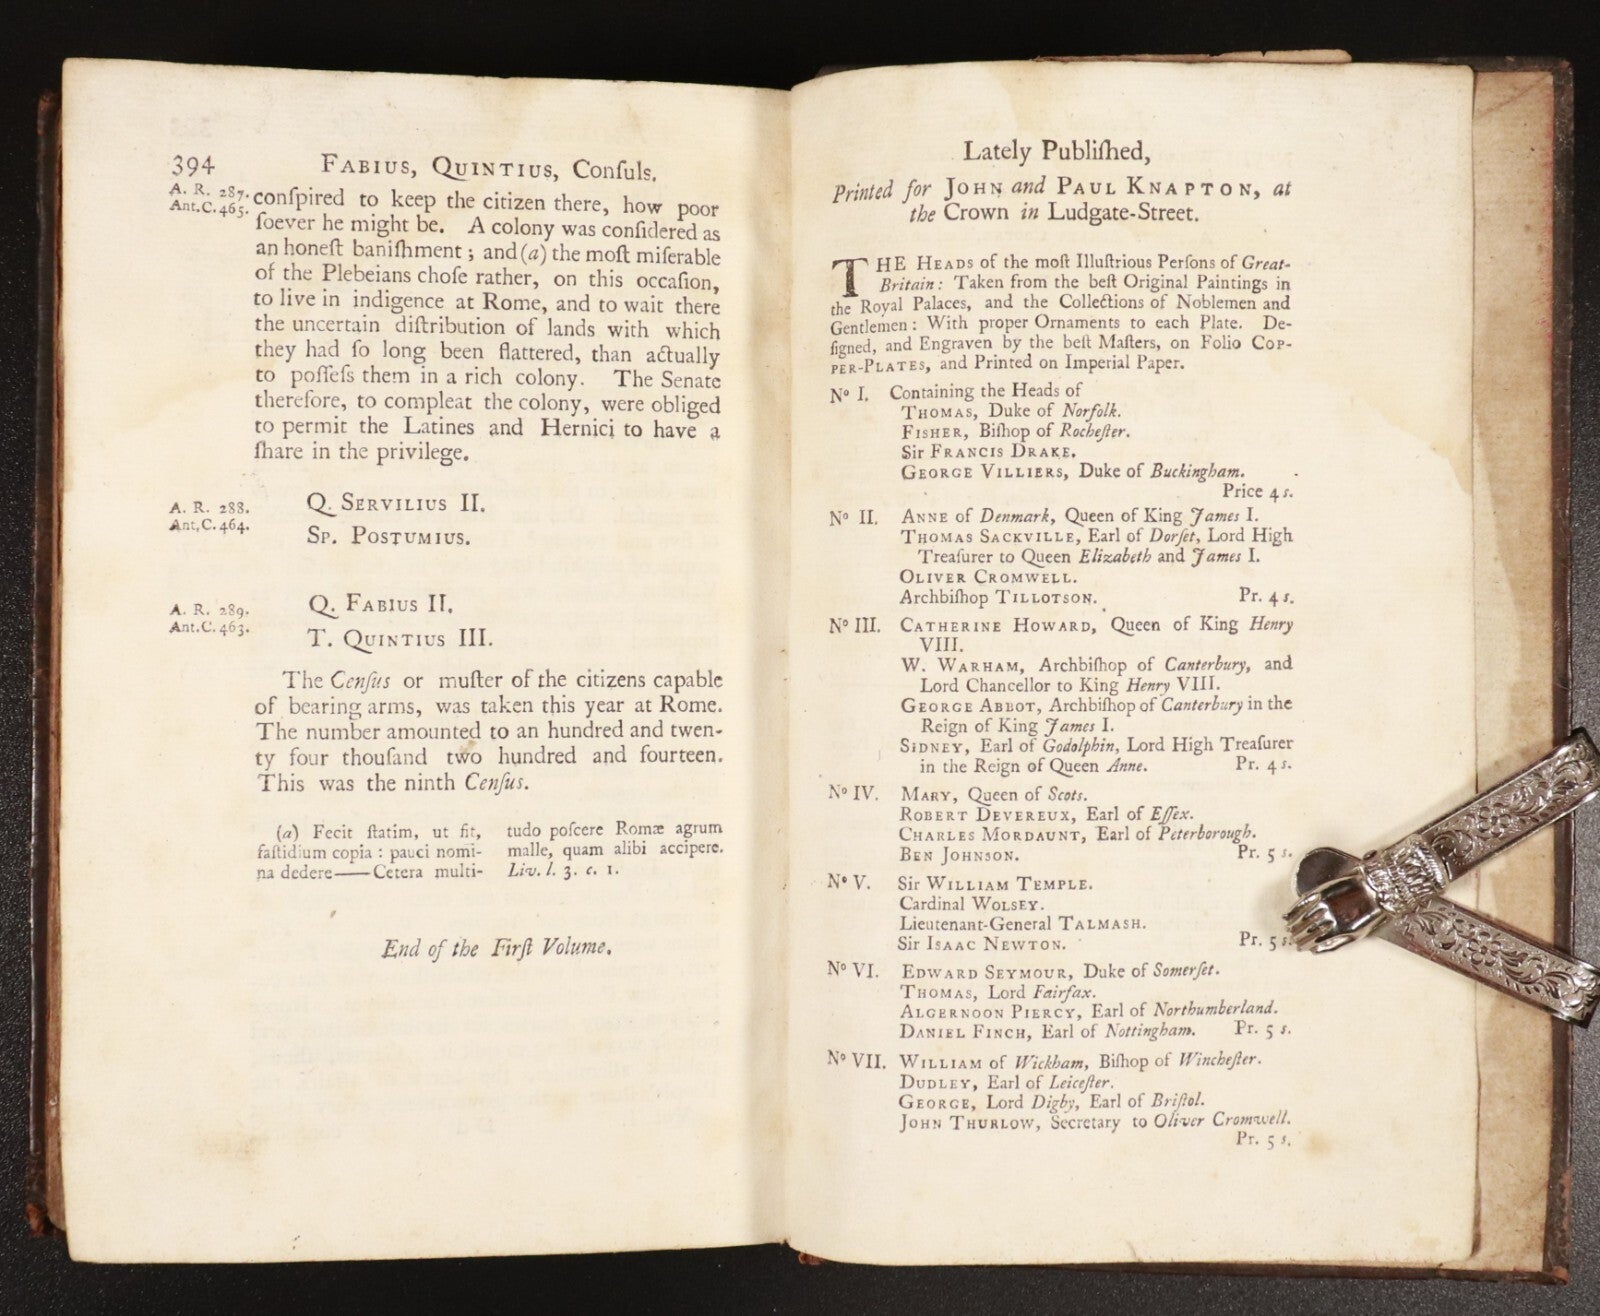 394 FABIUS, QUINTIUS, Conſuls.
A. R. 287.
Ant.C. 465.
conſpired to keep the citizen there, how poor
ſoever he might be. A colony was conſidered as
an honeſt baniſhment ; and (a) the moſt miſerable
of the Plebeians choſe rather, on this occaſion,
to live in indigence at Rome, and to wait there
the uncertain diſtribution of lands with which
they had ſo long been flattered, than actually
to poſſeſs them in a rich colony. The Senate
therefore, to compleat the colony, were obliged
to permit the Latines and Hernici to have a
ſhare in the privilege.
A. R. 288.
Ant.C. 464.
Q. SERVILIUS II.
SP. POSTUMIUS.
A. R. 289.
Ant.C. 463.
Q. FABIUS II.
T. QUINTIUS III.
The Cenſus or muſter of the citizens capable
of bearing arms, was taken this year at Rome.
The number amounted to an hundred and twen-
ty four thouſand two hundred and fourteen.
This was the ninth Cenſus.
(a) Fecit ſtatim, ut fit,
faſtidium copia : pauci nomi-
na dedere——Cetera multi-
tudo poſcere Romæ agrum
malle, quam alibi accipere.
Liv. l. 3. c. 1.
End of the Firſt Volume.
Lately Publiſhed,
Printed for JOHN and PAUL KNAPTON, at
the Crown in Ludgate-Street.
THE HEADS of the moſt Illuſtrious Perſons of Great-
Britain : Taken from the beſt Original Paintings in
the Royal Palaces, and the Collections of Noblemen and
Gentlemen : With proper Ornaments to each Plate. De-
ſigned, and Engraven by the beſt Maſters, on Folio COP-
PER-PLATES, and Printed on Imperial Paper.
No I. Containing the Heads of
THOMAS, Duke of Norfolk.
FISHER, Biſhop of Rocheſter.
Sir FRANCIS DRAKE.
GEORGE VILLIERS, Duke of Buckingham.
Price 4 s.
No II. ANNE of Denmark, Queen of King James I.
THOMAS SACKVILLE, Earl of Dorſet, Lord High
Treaſurer to Queen Elizabeth and James I.
OLIVER CROMWELL.
Archbiſhop TILLOTSON. Pr. 4 s.
No III. CATHERINE HOWARD, Queen of King Henry
VIII.
W. WARHAM, Archbiſhop of Canterbury, and
Lord Chancellor to King Henry VIII.
GEORGE ABBOT, Archbiſhop of Canterbury in the
Reign of King James I.
SIDNEY, Earl of Godolphin, Lord High Treaſurer
in the Reign of Queen Anne. Pr. 4 s.
No IV. MARY, Queen of Scots.
ROBERT DEVEREUX, Earl of Eſſex.
CHARLES MORDAUNT, Earl of Peterborough.
BEN JOHNSON. Pr. 5 s.
No V. Sir WILLIAM TEMPLE.
Cardinal WOLSEY.
Lieutenant-General TALMASH.
Sir ISAAC NEWTON. Pr. 5 s.
No VI. EDWARD SEYMOUR, Duke of Somerſet.
THOMAS, Lord Fairfax.
ALGERNOON PIERCY, Earl of Northumberland.
DANIEL FINCH, Earl of Nottingham. Pr. 5 s.
No VII. WILLIAM of Wickham, Biſhop of Wincheſter.
DUDLEY, Earl of Leiceſter.
GEORGE, Lord Digby, Earl of Briſtol.
JOHN THURLOW, Secretary to Oliver Cromwell.
Pr. 5 s.